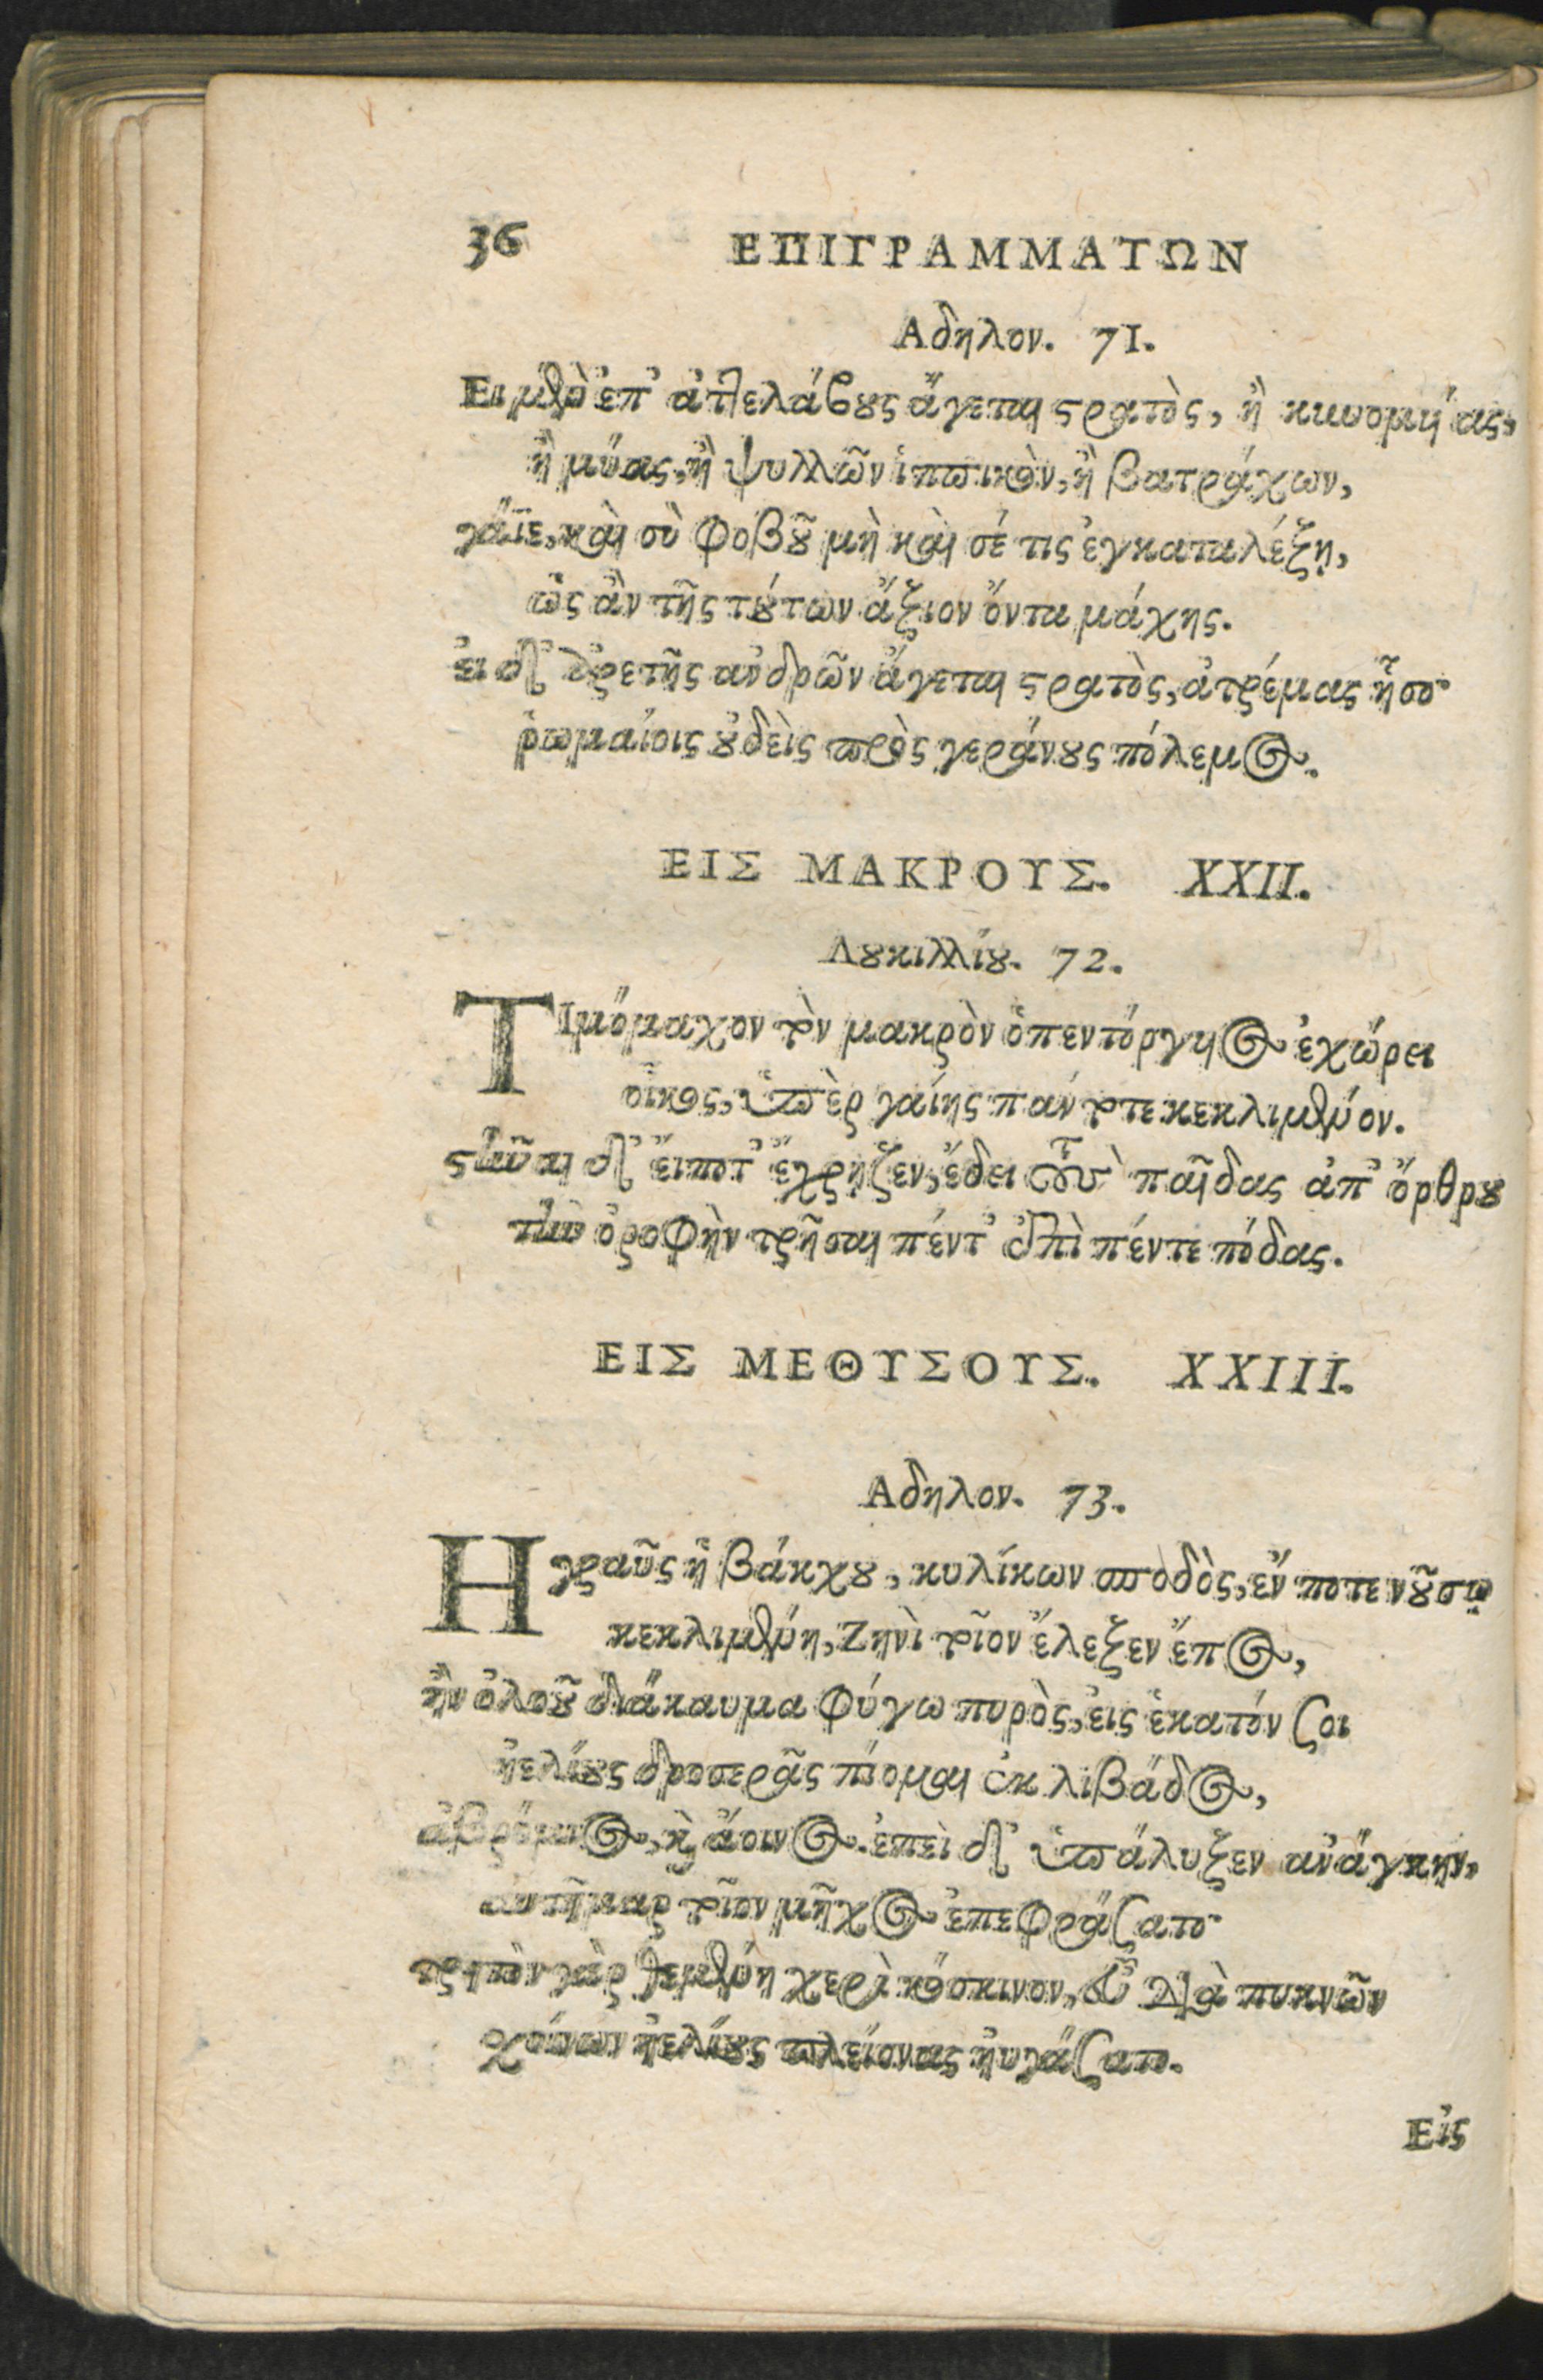 36 ΕΠΙΓΡΑΜΜΑΤΩΝ
Αδηλον. 71.
Ει μὲν ἐπ᾽ ἀττελάβους ἄγεται στρατὸς, ἢ κυνομυίας,
ἢ μύας, ἢ ψυλλῶν ἱππικὸν, ἢ βατράχων,
γάϊε, καὶ σὺ φοβοῦ μὴ καὶ σέ τις ἐγκαταλέξῃ,
ὡς ἂν τῆς τούτων ἄξιον ὄντα μάχης.
εἰ δ᾽ ἀρετῆς ἀνδρῶν ἄγεται στρατὸς, ἀτρέμας ἧσο·
ῥωμαίοις οὐδεὶς πρὸς γεράνους πόλεμος.
ΕΙΣ ΜΑΚΡΟΥΣ. XXII.
Λουκιλλίου. 72.
ΤΙμόμαχον τὸν μακρὸν ὁ πεντόργυιος ἐχώρει
οἶκος, ὑπὲρ γαίης πάντοτε κεκλιμένον.
στῆναι δ᾽ εἴποτ᾽ ἔχρῃζεν, ἔδει τοὺς παῖδας ἀπ᾽ ὄρθρου
τὴν ὀροφὴν τρῆσαι πέντ᾽ ἐπὶ πέντε πόδας.
ΕΙΣ ΜΕΘΥΣΟΥΣ. XXIII.
Αδηλον. 73.
Η γραῦς ἡ βάκχου, κυλίκων σποδὸς, ἔν ποτε νούσῳ
κεκλιμένη, Ζηνὶ τοῖον ἔλεξεν ἔπος,
ἢν ὀλοοῦ διάκαυμα φύγω πυρὸς, εἰς ἑκατόν σοι
ἠελίους δροσερᾶς πίομαι ἐκ λιβάδος,
ἄβρομος, καὶ ἄοινος. ἐπεὶ δ᾽ ὑπάλυξεν ἀνάγκην,
αὐτῆμαρ τοῖον μῆχος ἐπεφράσατο·
τρητὸν γὰρ θεμένη χερὶ κόσκινον, εὖ διὰ πυκνῶν
σχοίνων ἠελίους πλείονας ηὐγάσατο.
Εἰς